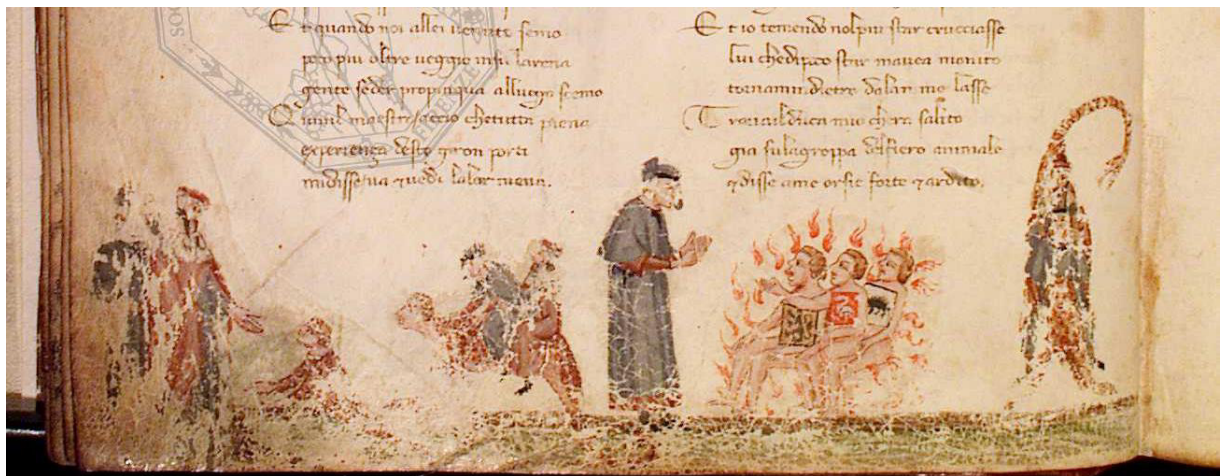 Et quando noi allei uenute semo
poco piu oltre ueggio insu larena
gente seder propinqua alluogo scemo
Quiuil maestro accio chetutta piena
experienza desto giron porti
midisse ua ⁊ uedi lalor mena.
Et io temendo nolpiu star crucciasse
lui chedipoco star mauea monito
tornami dietro lasse
Trouail duca mio chera salito
gia sulagroppa delfiero animale
⁊ disse ame orsie forte ⁊ ardito.